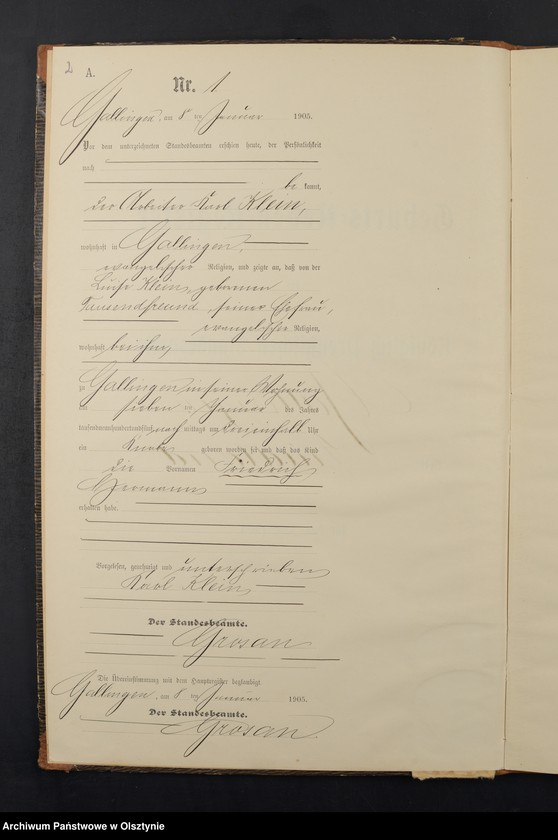 2
A.
Nr. 1
Gallingen, am 8ten Januar 1905.
Vor dem unterzeichneten Standesbeamten erschien heute, der Persönlichkeit
nach
be kannt,
der Arbeiter Karl Klein,
wohnhaft in Gallingen,
evangelischer Religion, und zeigte an, daß von der
Luise Klein, geborenen
Tausendfreund, seiner Ehefrau,
evangelischer Religion,
wohnhaft bei ihm,
zu Gallingen, in seiner Wohnung
am sieben ten Januar des Jahres
tausendneunhundertundfünf, nach mittags um Uhr
ein Knabe geboren worden sei und daß das Kind
die Vornamen Friedrich
Hermann
erhalten habe.
Vorgelesen, genehmigt und unterschrieben
Karl Klein
Der Standesbeamte.
Grosan
Die Übereinstimmung mit dem Hauptregister beglaubigt.
Gallingen, am 8ten Januar 1905.
Der Standesbeamte.
Grosan.
Archiwum Państwowe w Olsztynie